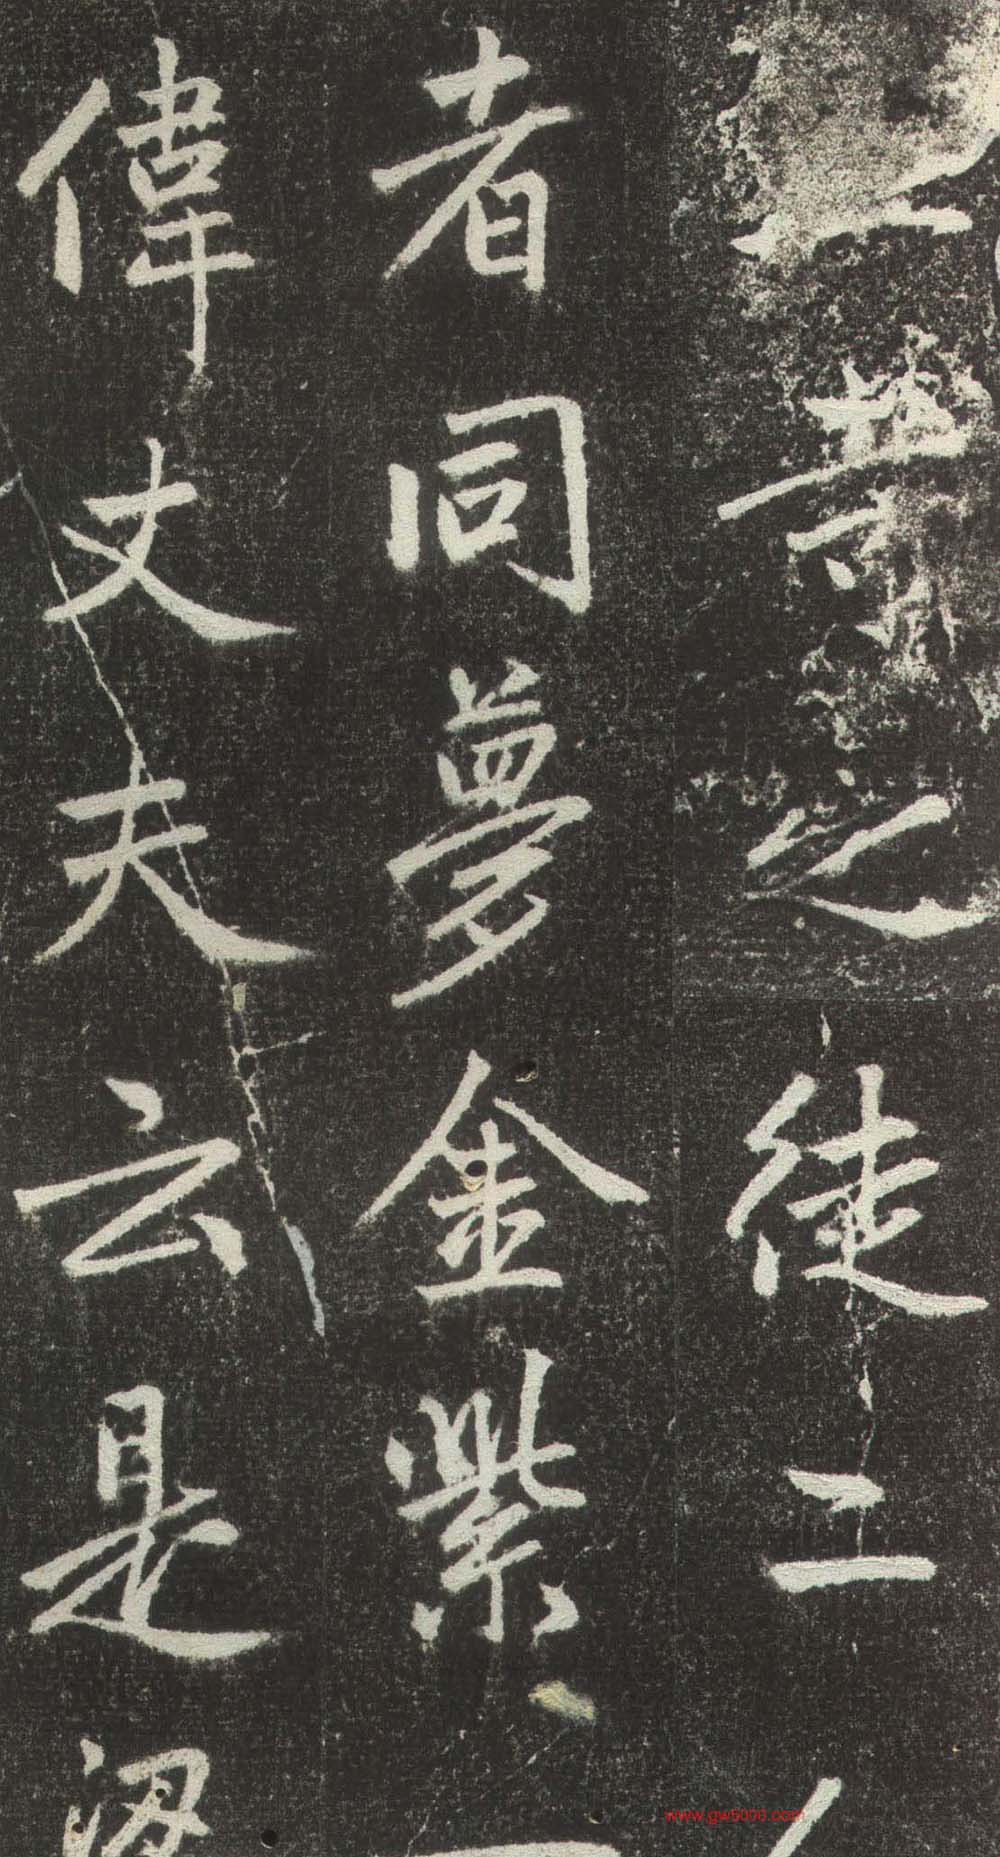 之徒二
者同夢金紫
偉丈夫云是
www.gw5000.com